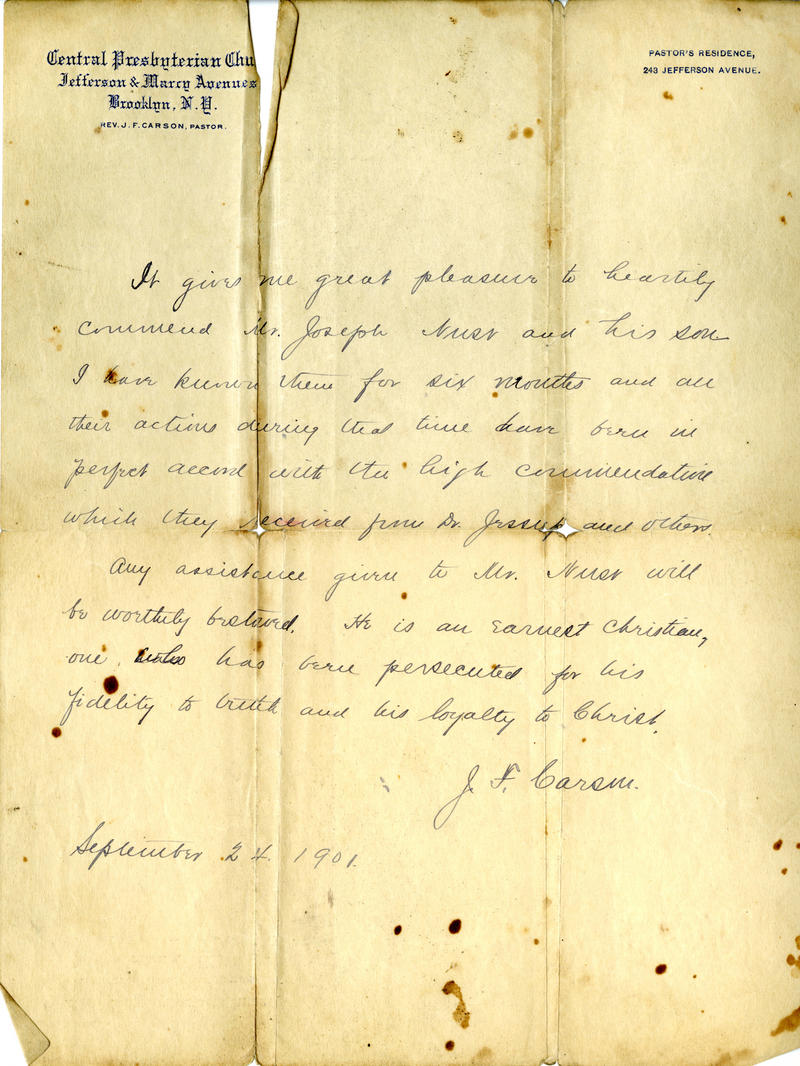 Central Presbyterian Chu
Jefferson & Marcy Avenues
Brooklyn, N.Y.
REV. J. F. CARSON, PASTOR.
PASTOR'S RESIDENCE,
243 JEFFERSON AVENUE.
It gives me great pleasure to heartily
commend Mr. Joseph Nusr and his son
I have known them for six months and all
their actions during that time have been in
perfect accord with the high commendation
which they received from Dr. Jessup and others.
Any assistance given to Mr. Nusr will
be worthily bestowed. He is an earnest Christian,
one who has been persecuted for his
fidelity to truth and his loyalty to Christ.
J. F. Carson.
September 24. 1901.